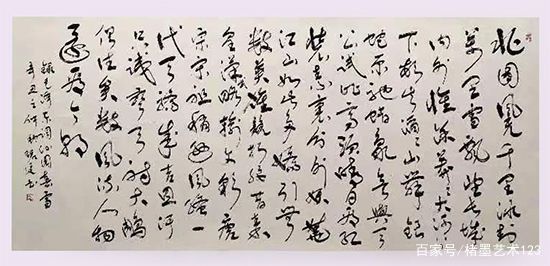 北国风光千里冰封
万里雪飘望长城
内外惟余莽莽大河
下顿失滔滔山舞银
蛇原驰蜡象欲与天
公试比高须晴日看红
装素裹分外妖娆
江山如此多娇引无
数英雄竞折腰惜秦
皇汉武略输文彩唐
宗宋祖稍逊风骚一
代天骄成吉思汗
只识弯弓射大雕
俱往矣数风流人物
还看今朝
录毛泽东词沁园春雪
辛丑之
百家号/楮墨艺术123